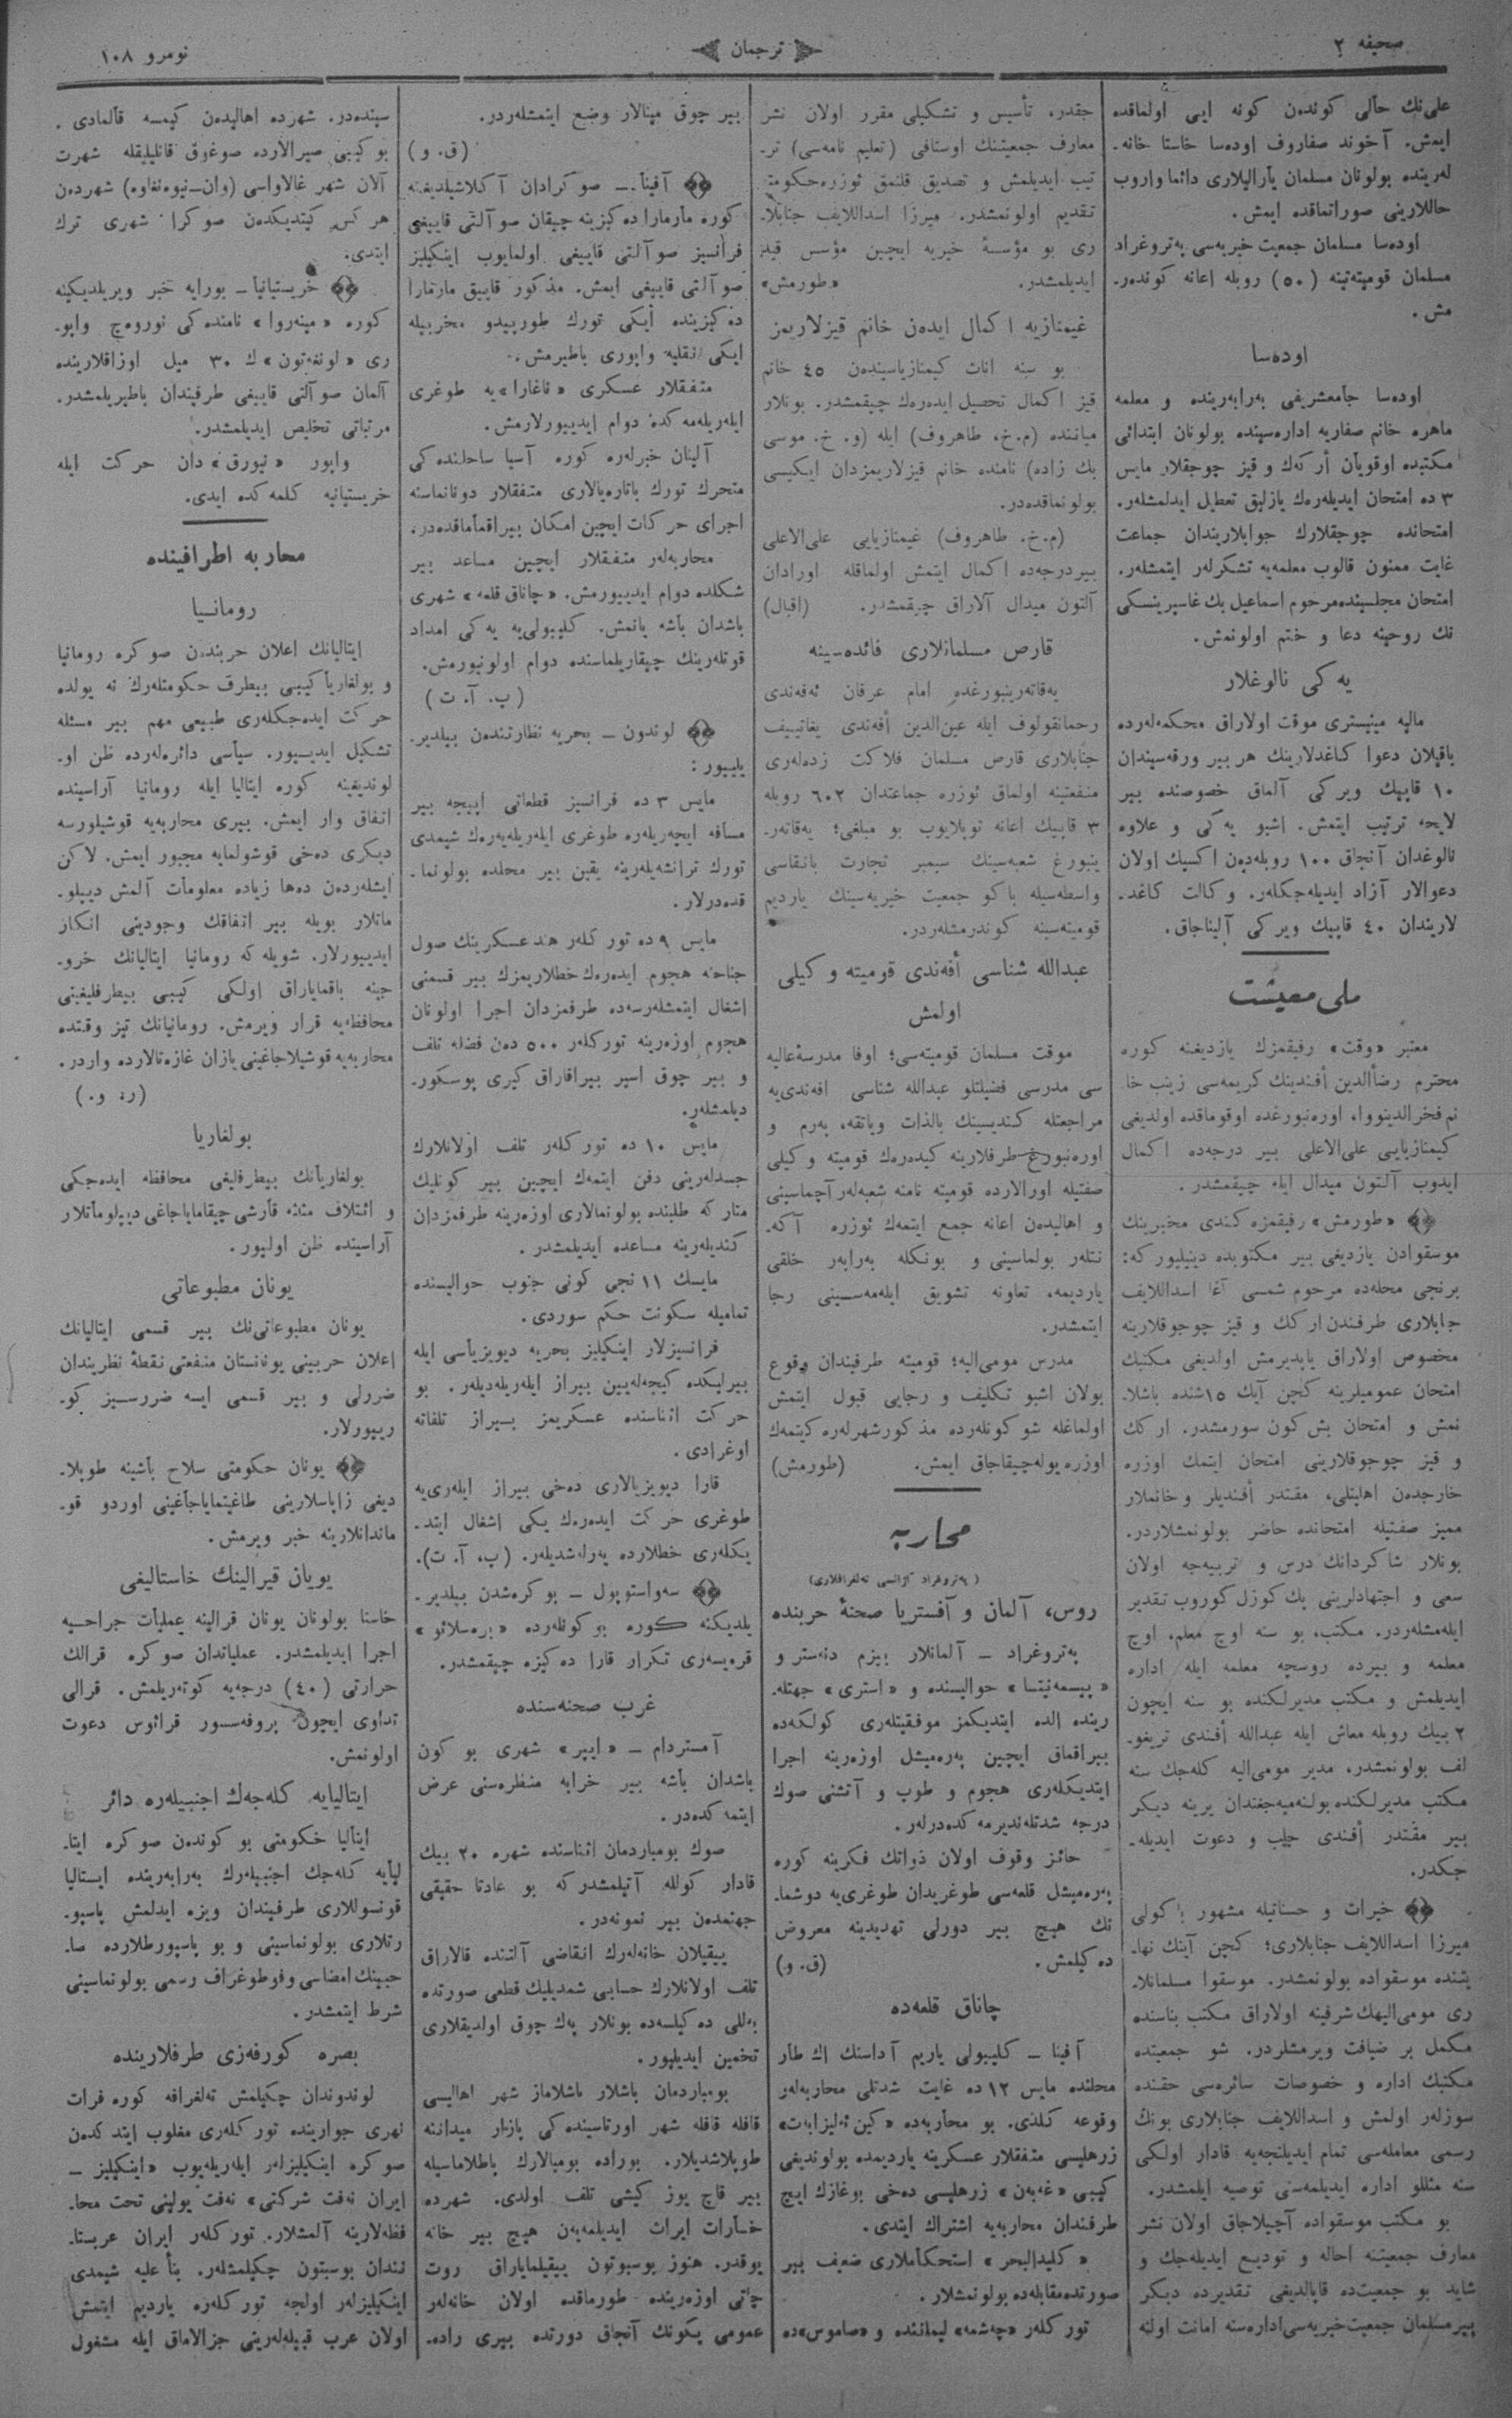 صحیفه ۲
ترجمان
نومرو ۱۰۸
علی‌نك حالی كوندن كونه ایی اولماقده
ایمش. آخوند صفاروف اوده‌سا خاستا خانه‌ـ
له‌رینده بولونان مسلمان یارالیلاری دائما واروب
حاللارینی صوراتماقده ایمش.
اوده‌سا مسلمان جمعیت خیریه‌سی په‌تروغراد
مسلمان قومیته‌تینه (٥٠) روبله اعانه كونده‌رـ
مش.
اوده‌سا
اوده‌سا جامعشریفی به‌رابه‌رینده و معلمه
ماهره خانم صفاریه اداره‌سینده بولونان ابتدائی
مكتبده اوقویان أركه‌ك و قیز چوجقلار مایس
٣ ده امتحان ایدیله‌رك یازلیق تعطیل ایدلمشله‌ر.
امتحانده چوجقلارك جوابلاریندان جماعت
غایت ممنون قالوب معلمه‌یه تشكرله‌ر ایتمشله‌ر.
امتحان مجلسینده‌مرحوم اسماعیل بك غاسپرینسكی
نك روحینه دعا و ختم اولونمش.
یه كی نالوغلار
مالیه مینیستری موقت اولاراق محكمه‌له‌رده
باقیلان دعوا كاغدلارینك هر بیر ورقه‌سیندان
١٠ قاپیك ویركی آلماق خصوصنده بیر
لایحه ترتیب ایتمش. اشبو یه كی و علاوه
نالوغدان آنجاق ١٠٠ روبله‌دن اكسیك اولان
دعوالار آزاد ایدیله‌جكله‌ر. وكالت كاغدـ
لاریندان ٤٠ قاپیك ویركی آلیناجاق.
ملی معیشت
معتبر «وقت» رفیقمزك یازدیغنه كوره
محترم رضاالدین أفندینك كریمه‌سی زینب خا
نم فخرالدینووا، اوره‌نبورغده اوقوماقده اولدیغی
كیمنازیایی علی‌الاعلی بیر درجه‌ده اكمال
ایدوب آلتون میدال ایله چیقمشدر.
«طورمش» رفیقمزه كندی مخبرینك
موسقوادن یازدیغی بیر مكتوبده دینیلیوركه:
برنجی محله‌ده مرحوم شمسی آغا اسداللایف
جنابلاری طرفندن اركك و قیز چوجوقلارینه
مخصوص اولاراق یاپدیرمش اولدیغی مكتبك
امتحان عمومیلرینه كچن آیك ١٥شنده باشلاـ
نمش و امتحان بش كون سورمشدر. اركك
و قیز چوجوقلارینی امتحان ایتمك اوزره
خارجدن اهلیتلی، مقتدر أفندیلر و خانملار
ممیز صفتیله امتحانده حاضر بولونمشلاردر.
بونلار شاكردانك درس و تربیه‌جه اولان
سعی و اجتهادلرینی پك كوزل كوروب تقدیر
ایله‌مشله‌ردر. مكتب، بو سنه اوچ معلم، اوچ
معلمه و بیرده روسچه معلمه ایله اداره
ایدیلمش و مكتب مدیرلكنده بو سنه ایچون
٢ بیك روبله معاش ایله عبدالله أفندی تریغوـ
لف بولونمشدر. مدیر مومی‌الیه كله‌جك سنه
مكتب مدیرلكنده بولنه‌میه‌جغندان یرینه دیكر
بیر مقتدر أفندی جلب و دعوت ایدیله‌ـ
جكدر.
خیرات و حسناتیله مشهور باكولی
میرزا اسداللایف جنابلاری؛ كچن آینك نهاـ
یتنده موسقواده بولونمشدر. موسقوا مسلمانلاـ
ری مومی‌الیهك شرفینه اولاراق مكتب بناسنده
مكمل بر ضیافت ویرمشلردر. شو جمعیتده
مكتبك اداره و خصوصات سائره‌سی حقنده
سوزله‌ر اولمش و اسداللایف جنابلاری بونك
رسمی معامله‌سی تمام ایدیلنجه‌یه قادار اولكی
سنه مثللو اداره ایدیلمه‌سنی توصیه ایلمشدر.
بو مكتب موسقواده آچیلاجاق اولان نشر
معارف جمعیتنه احاله و تودیع ایدیله‌جك و
شاید بو جمعیت‌ده قاپالدیغی تقدیرده دیكر
بیرمسلمان جمعیت‌خیریه‌سی‌اداره‌سنه امانت اولنه
جقدر، تأسیس و تشكیلی مقرر اولان نشر
معارف جمعیتنك اوستافی (تعلیم نامه‌سی) ترـ
تیب ایدیلمش و تصدیق قلنمق ئوزره‌حكومته
تقدیم اولونمشدر. میرزا اسداللایف جنابلاـ
ری بو مؤسسۀ خیریه ایچین مؤسس قید
ایدیلمشدر. «طورمش»
غیمنازیه اكمال ایده‌ن خانم قیزلاریمز
بو سنه اناث كیمنازیاسینده‌ن ٤٥ خانم
قیز اكمال تحصیل ایده‌ره‌ك چیقمشدر. بونلار
میاننده (م.خ. طاهروف) ایله (و. خ. موسی
بك زاده) نامنده خانم قیزلاریمزدان ایكیسی
بولونماقده‌در.
(م.خ. طاهروف) غیمنازیایی علی‌الاعلی
بیردرجه‌ده اكمال ایتمش اولماقله اورادان
آلتون میدال آلاراق چیقمشدر. (اقبال)
قارص مسلمانلاری فائده‌سینه
یه‌قاته‌رینبورغده امام عرفان ئه‌فه‌ندی
رحمانقولوف ایله عین‌الدین أفه‌ندی یغاتییف
جنابلاری قارص مسلمان فلاكت زده‌له‌ری
منفعتینه اولماق ئوزره جماعتدان ٦٠٢ روبله
٣ قاپیك اعانه توپلایوب بو مبلغی؛ یه‌قاته‌رـ
ینبورغ شعبه‌سینك سیبیر تجارت بانقاسی
واسطه‌سیله باكو جمعیت خیریه‌سینك یاردیم
قومیته‌سینه كوندرمشله‌ردر.
عبدالله شناسی أفه‌ندی قومیته وكیلی
اولمش
موقت مسلمان قومیته‌سی؛ اوفا مدرسۀ‌عالیه
سی مدرسی فضیلتلو عبدالله شناسی افه‌ندی‌یه
مراجعتله كندیسینك بالذات ویاتقه، په‌رم و
اوره‌نبورغ طرفلارینه كیده‌ره‌ك قومیته وكیلی
صفتیله اورالارده قومیته نامنه شعبه‌له‌رآچماسینی
و اهالیدن اعانه جمع ایتمه‌ك ئوزره آكه‌ـ
نتله‌ر بولماسینی و بونكله به‌رابه‌ر خلقی
یاردیمه، تعاونه تشویق ایله‌مه‌سینی رجا
ایتمشدر.
مدرس مومی‌الیه؛ قومیته طرفیندان وقوع
بولان اشبو تكلیف و رجایی قبول ایتمش
اولماغله شو كونله‌رده مذكورشهرله‌ره كیتمه‌ك
اوزره یوله‌چیقاجاق ایمش. (طورمش)
محاربه
(په‌تروغراد آژانسی ته‌لغرافلاری)
روس، آلمان و آفستریا صحنۀ حربنده
په‌تروغراد ـ آلمانلار بیزم دنه‌ستر و
حوالیسنده و «استری» جهتله‌ـ
رینده إلده ایتدیكمز موفقیتله‌ری كولكه‌ده
بیراقماق ایچین په‌ره‌میشل اوزه‌رینه اجرا
ایتدیكله‌ری هجوم و طوپ و آتشنی صوك
درجه شدتله‌ندیرمه كده‌درله‌ر.
حائز وقوف اولان ذواتك فكرینه كوره
په‌ره‌میشل قلعه‌سی طوغریدان طوغری‌یه دوشماـ
نك هیچ بیر دورلی تهدیدینه معروض
ده كیلمش. (ق.و)
چاناق قلعه‌ده
آفینا ـ كلیبولی یاریم آداسنك اك طار
محلنده مایس ١٢ ده غایت شدتلی محاربه‌له‌ر
وقوعه كلدی. بو محاربه‌ده «كین ئه‌لیزابه‌ت»
زرهلیسی متفقلار عسكرینه یاردیمده بولوندیغی
كیبی «غه‌به‌ن» زرهلیسی ده‌خی بوغازك ایچ
طرفندان محاربه‌یه اشتراك ایتدی.
«كلیدالبحر» استحكاملاری ضعیف بیر
صورتده‌مقابله‌ده بولونمشلار.
توركله‌ر «چه‌شمه» لیماننده و «صاموس»ده
بیر چوق مینالار وضع ایتمشله‌ردر.
(ق.و)
آفینا ـ صوكرادان آكلاشیلدیغنه
كوره مارمارا ده‌كیزینه چیقان صوآلتی قاییغی
فرانسیز صوآلتی قاییغی اولمایوب اینكیلیز
صوآلتی قاییغی ایمش. مذكور قاییق مارمارا
ده‌كیزینده أیكی تورك طورپیدو مخربیله
ایكی نقلیه واپوری باطیرمش.
متفقلار عسكری «ناغارا»یه طوغری
ایله‌ریله‌مه كده دوام ایدییورلارمش.
آلینان خبرله‌ره كوره آسیا ساحلنده‌كی
متحرك تورك باتاره‌یالاری متفقلار دونانماسنه
اجرای حركات ایچین امكان بیراقماماقده‌در.
محاربه‌له‌ر متفقلار ایچین مساعد بیر
شكلده دوام ایدییورمش. «چاناق قلعه» شهری
باشدان باشه یانمش. كلیبولی‌یه یه كی امداد
قوتله‌رینك چیقاریلماسنده دوام اولونیورمش.
(پ. آ. ت)
لوندون ـ بحریه نظارتندن بیلدیرـ
یلییور:
مایس ٣ ده فرانسیز قطعاتی ایپیجه بیر
مسافه ایچه‌ریله‌ره طوغری ایله‌ریله‌یه‌ره‌ك شیمدی
تورك ترانشه‌یله‌رینه یقین بیر محلده بولونماـ
قده‌درلار.
مایس ٩ ده توركله‌ر هند عسكرینك صول
جناحنه هجوم ایده‌ره‌ك خطلاریمزك بیر قسمنی
اشغال ایتمشله‌رسه‌ده طرفمزدان اجرا اولونان
هجوم اوزه‌رینه توركله‌ر ٥٠٠ ده‌ن فضله تلف
و بیر چوق اسیر بیراقاراق كیری پوسكورـ
دیلمشله‌ر.
مایس ١٠ ده توركله‌ر تلف اولانلارك
جسدله‌رینی دفن ایتمه‌ك ایچین بیر كونلیك
متاركه طلبنده بولونمالاری اوزه‌رینه طرفمزدان
كندیله‌رینه مساعده ایدیلمشدر.
مایسك ١١ نجی كونی جنوب حوالیسنده
تمامیله سكونت حكم سوردی.
فرانسیزلار اینكیلیز بحریه دیویزیاسی ایله
بیرلیكده كیجه‌له‌یین بیراز ایله‌ریله‌دیله‌ر. بو
حركت اثناسنده عسكریمز بیراز تلفاته
اوغرادی.
قارا دیویزیالاری ده‌خی بیراز ایله‌ری‌یه
طوغری حركت ایده‌ره‌ك یكی اشغال ایتدـ
یكله‌ری خطلارده یه‌رله‌شدیله‌ر. (پ. آ. ت).
سه‌واستوپول ـ بوكره‌شدن بیلدیرـ
یلدیكنه كوره بو كونله‌رده «بره‌سلاو»
قره‌یسه‌ری تكرار قارا ده‌كیزه چیقمشدر.
غرب صحنه‌سنده
آمستردام ـ «ایپر» شهری بو كون
باشدان باشه بیر خرابه منظره‌سنی عرض
ایتمه كده‌در.
صوك بومباردمان اثناسنده شهره ٢٠ بیك
قادار كولله آتیلمشدركه بو عادتا حقیقی
جهنمدن بیر نمونه‌در.
ییقیلان خانه‌له‌رك انقاضی آلتنده قالاراق
تلف اولانلارك حسابی شمدیلیك قطعی صورتده
بللی ده كیلسه‌ده بونلار په‌ك چوق اولدیقلاری
تخمین ایدیلیور.
بومباردمان باشلار باشلاماز شهر اهالیسی
قافله قافله شهر اورتاسینده‌كی بازار میداننه
طوپلاشدیلار. بوراده بومبالارك باطلاماسیله
بیر قاچ یوز كیشی تلف اولدی. شهرده
خسارات ایراث ایدیلمه‌یه‌ن هیچ بیر خانه
یوقدر. هنوز بوسبوتون ییقیلمایاراق روت
چاتی اوزه‌رینده طورماقده اولان خانه‌له‌ر
عمومی یكونك آنجاق دورتده بیری راده‌ـ
سینده‌در. شهرده اهالیدن كیمسه قالمادی.
بو كیبی صیرالارده صوغوق قانلیلیقله شهرت
آلان شهر غالاواسی (وان‌ـنیوه‌نغاوه) شهردن
هركس كیتدیكدن صوكرا شهری ترك
ایتدی.
خریستیانیا ـ بورایه خبر ویریلدیكینه
كوره «مینه‌روا» نامنده‌كی نوروه‌ج واپوـ
ری «لونغه‌تون»ك ٣٠ میل اوزاقلارینده
آلمان صوآلتی قاییغی طرفیندان باطیریلمشدر.
مرتباتی تخلیص ایدیلمشدر.
واپور «نیورق» دان حركت ایله
خریستیانیه كلمه كده ایدی.
محاربه اطرافینده
رومانیا
ایتالیانك اعلان حربندن صوكره رومانیا
و بولغاریا كیبی بیطرف حكومتله‌رك نه یولده
حركت ایده‌جكله‌ری طبیعی مهم بیر مسئله
تشكیل ایدییور. سیاسی دائره‌له‌رده ظن اوـ
لوندیغینه كوره ایتالیا ایله رومانیا آراسینده
اتفاق وار ایمش. بیری محاربه‌یه قوشیلورسه
دیكری ده‌خی قوشولمایه مجبور ایمش. لاكن
ایشله‌ردن ده‌ها زیاده معلومات آلمش دیپلوـ
ماتلار بویله بیر اتفاقك وجودینی انكار
ایدییورلار. شویله‌كه رومانیا ایتالیانك خروـ
جینه باقمایاراق اولكی كیبی بیطرفلیغینی
محافظه‌یه قرار ویرمش. رومانیانك تیز وقتده
محاربه‌یه قوشیلاجاغینی یازان غازه‌تالارده واردر.
(ر. و.)
بولغاریا
بولغاریانك بیطرفلیغی محافظه ایده‌جكی
و ائتلاف مثلثه قارشی چیقمایاجاغی دیپلوماتلار
آراسینده ظن اولنیور.
یونان مطبوعاتی
یونان مطبوعاتی‌نك بیر قسمی ایتالیانك
اعلان حربینی یونانستان منفعتی نقطۀ نظریندان
ضررلی و بیر قسمی ایسه ضررسیز كوـ
رییورلار.
یونان حكومتی سلاح باشینه طوپلاـ
دیغی زاپاسلارینی طاغیتمایاجاغینی اوردو قوـ
ماندانلارینه خبر ویرمش.
یویان قیرالینك خاستالیغی
خاستا بولونان یونان قرالینه عملیات جراحیه
اجرا ایدیلمشدر. عملیاتدان صوكره قرالك
حرارتی (٤٠) درجه‌یه كوته‌ریلمش. قرالی
تداوی ایچون پروفه‌سسور قرائوس دعوت
اولونمش.
ایتالیایه كله‌جه‌ك اجنبیله‌ره دائر
ایتالیا حكومتی بو كوندن صوكره ایتاـ
لیایه كله‌جك اجنبیله‌رك به‌رابه‌رینده ایستالیا
قونسوللاری طرفیندان ویزه ایدلمش پاسپوـ
رتلاری بولونماسینی و بو پاسپورطلارده صاـ
حبینك امضاسی وفوطوغراف رسمی بولونماسینی
شرط ایتمشدر.
بصره كورفه‌زی طرفلارینده
لوندوندان چكیلمش ته‌لغرافه كوره فرات
نهری جوارینده توركله‌ری مغلوب ایتدكدن
صوكره اینكیلیزله‌ر ایله‌ریله‌یوب «اینكیلیز ـ
ایران نه‌فت شركتی» نه‌فت یولینی تحت محاـ
فظه‌لارینه آلمشلار. توركله‌ر ایران عربستاـ
نندان بوسبتون چكیلمشله‌ر. بناء علیه شیمدی
اینكیلیزله‌ر اولجه توركله‌ره یاردیم ایتمش
اولان عرب قبیله‌له‌رینی جزالاماق ایله مشغول